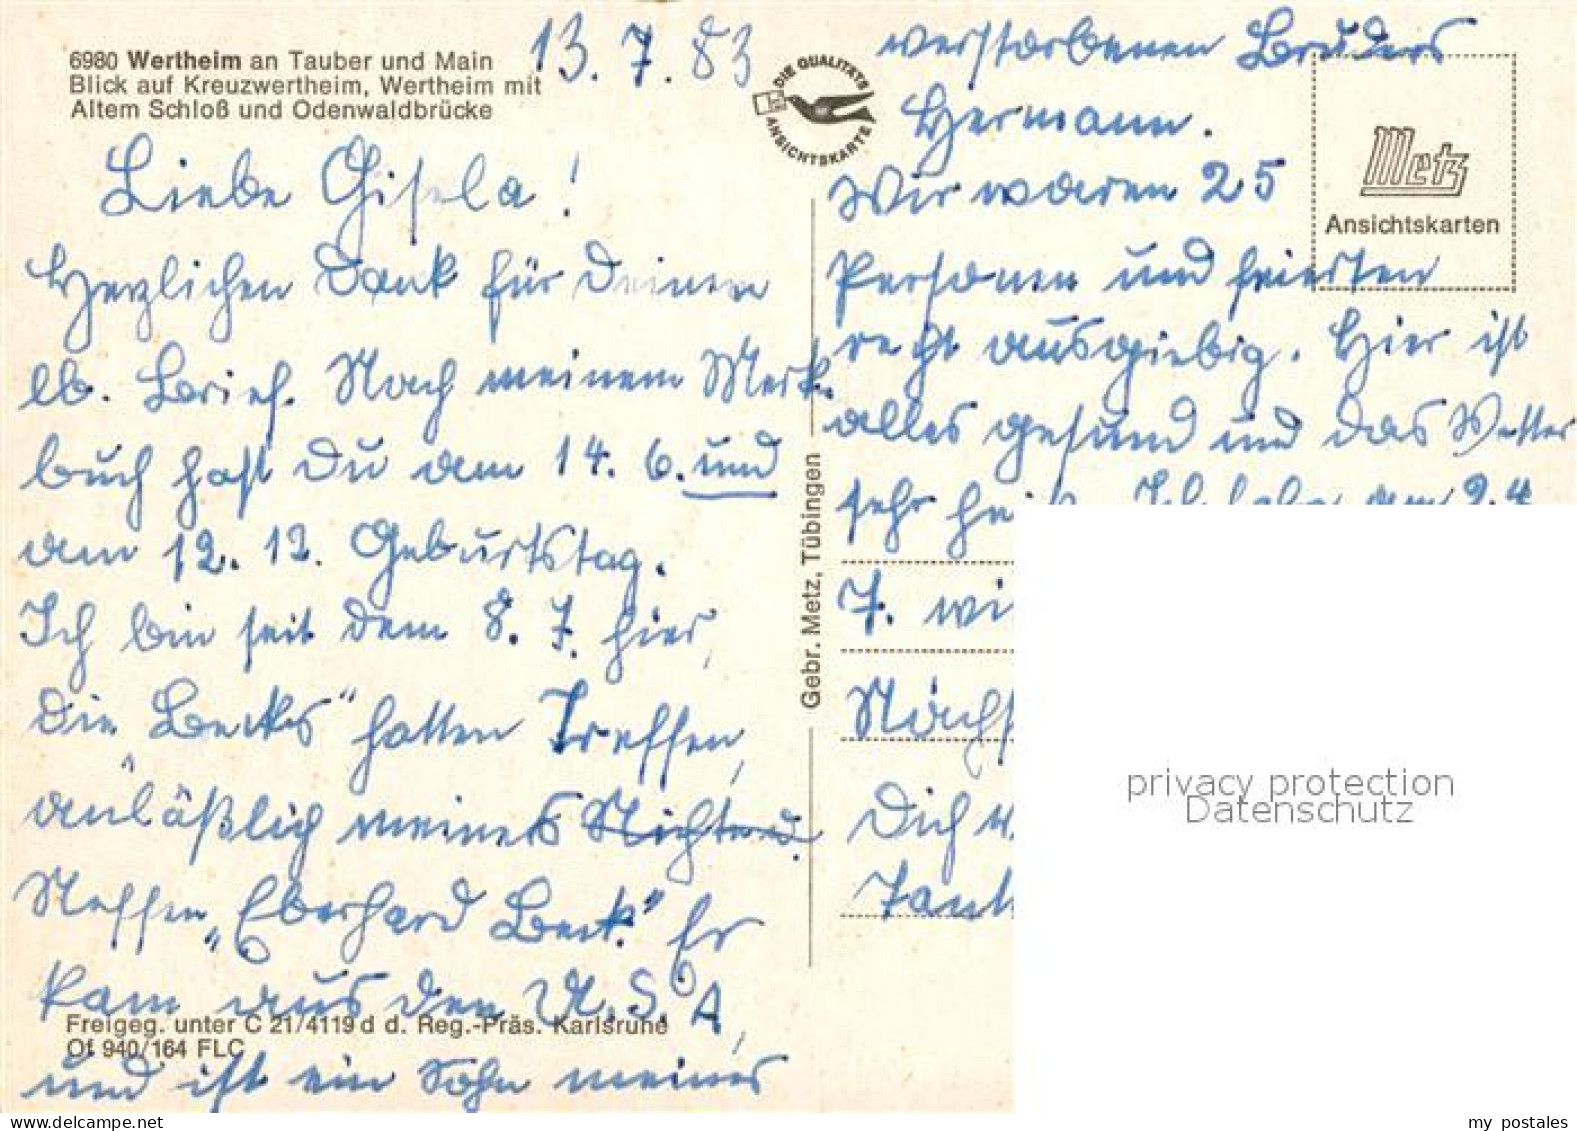 6980 Wertheim an Tauber und Main
Blick auf Kreuzwertheim, Wertheim mit
Altem Schloß und Odenwaldbrücke
13. 7. 83
Liebe Gisela!
Herzlichen Dank für Deinen
lb. Brief. Nach meinem Merk-
buch hast Du am 14. 6. und
am 12. 12. Geburtstag.
Ich bin seit dem 8. 7. hier,
die „Becks“ hatten Treffen,
anläßlich meines Nichte u.
Neffen „Eberhard Beck.“ Er
kam aus den U.S.A,
und ist ein Sohn meines
Freigeg. unter C 21/4119 d d. Reg.-Präs. Karlsruhe
Of 940/164 FLC
DIE QUALITÄTS
ANSICHTSKARTE
Gebr. Metz, Tübingen
verstorbenen Bruders
Hermann.
Wir waren 25
Personen und feierten
recht ausgiebig. Hier ist
alles gesund und das Wetter
sehr heiß. Ich fahre am 24.
7. wi
Nächs
Dich w.
Tante
Metz
Ansichtskarten
privacy protection
Datenschutz
my postales
www.delcampe.net